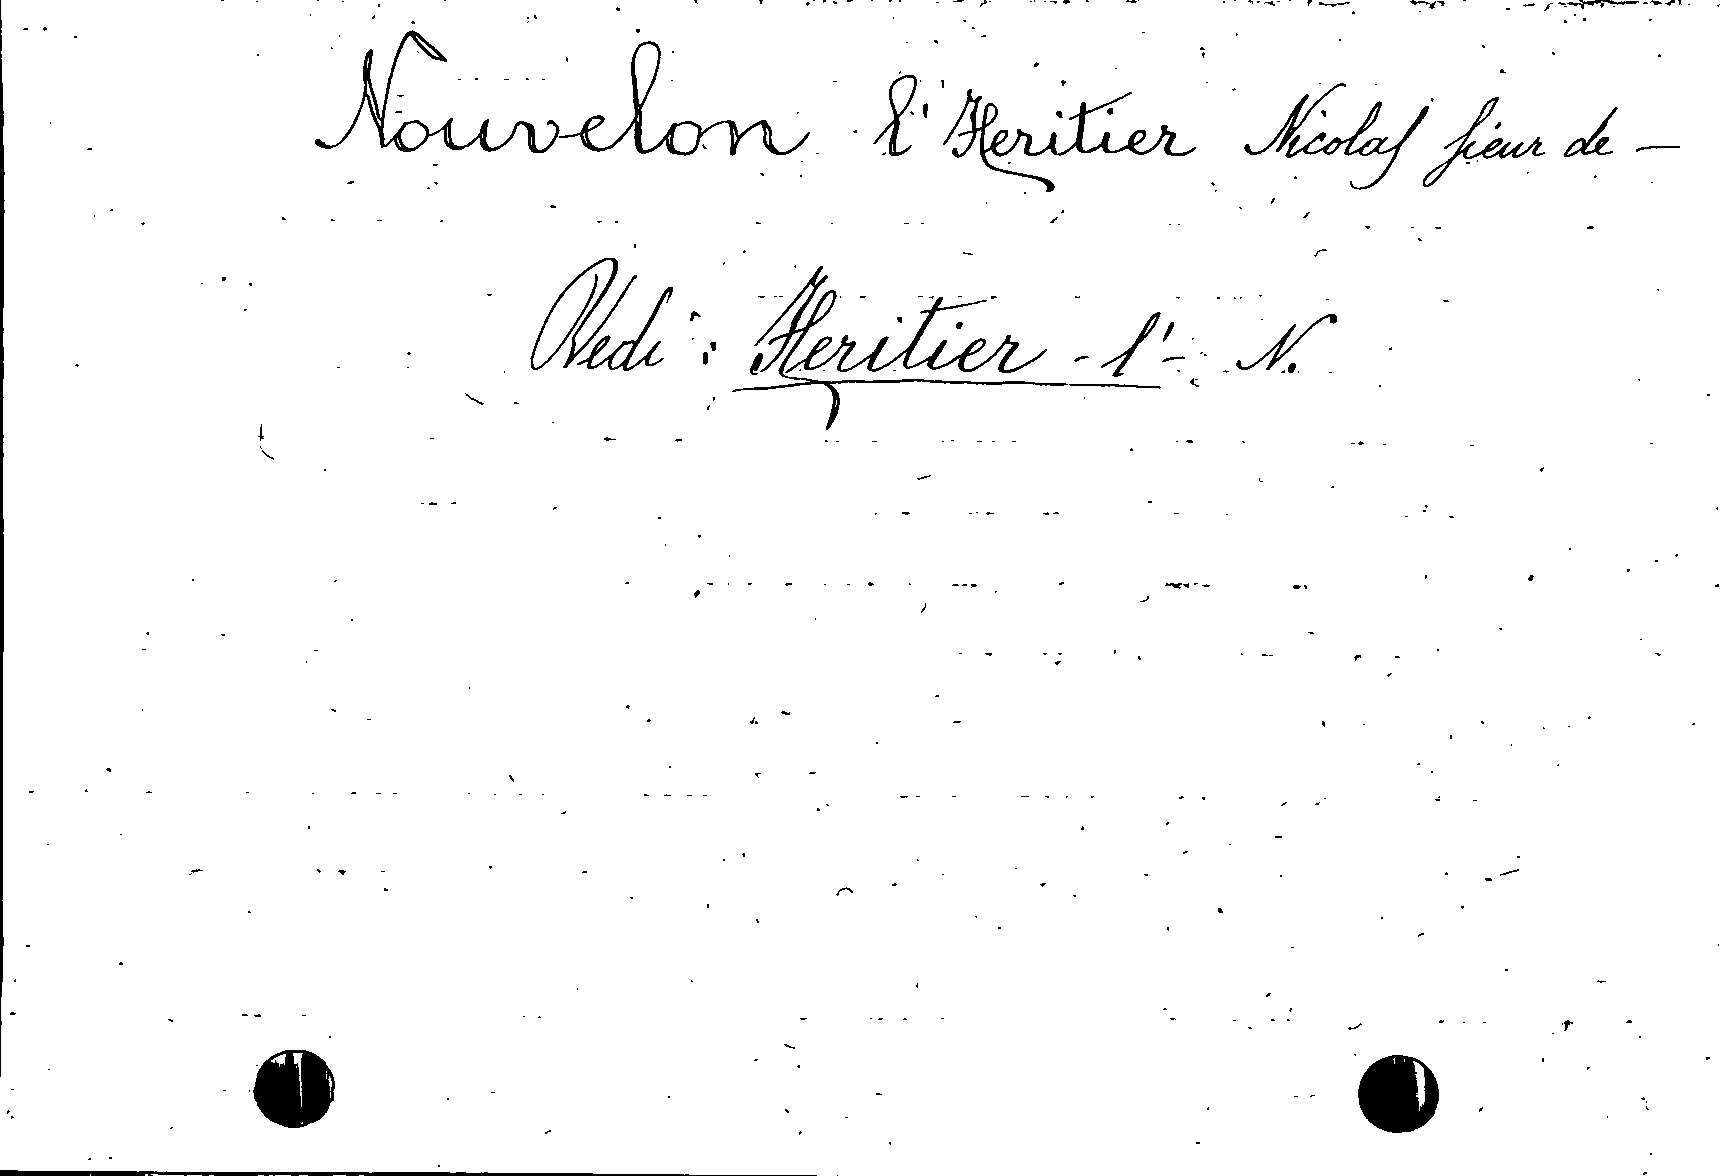 Nouvelon l'Heritier Nicolas sieur de —
Vedi : Heritier - l' - N.